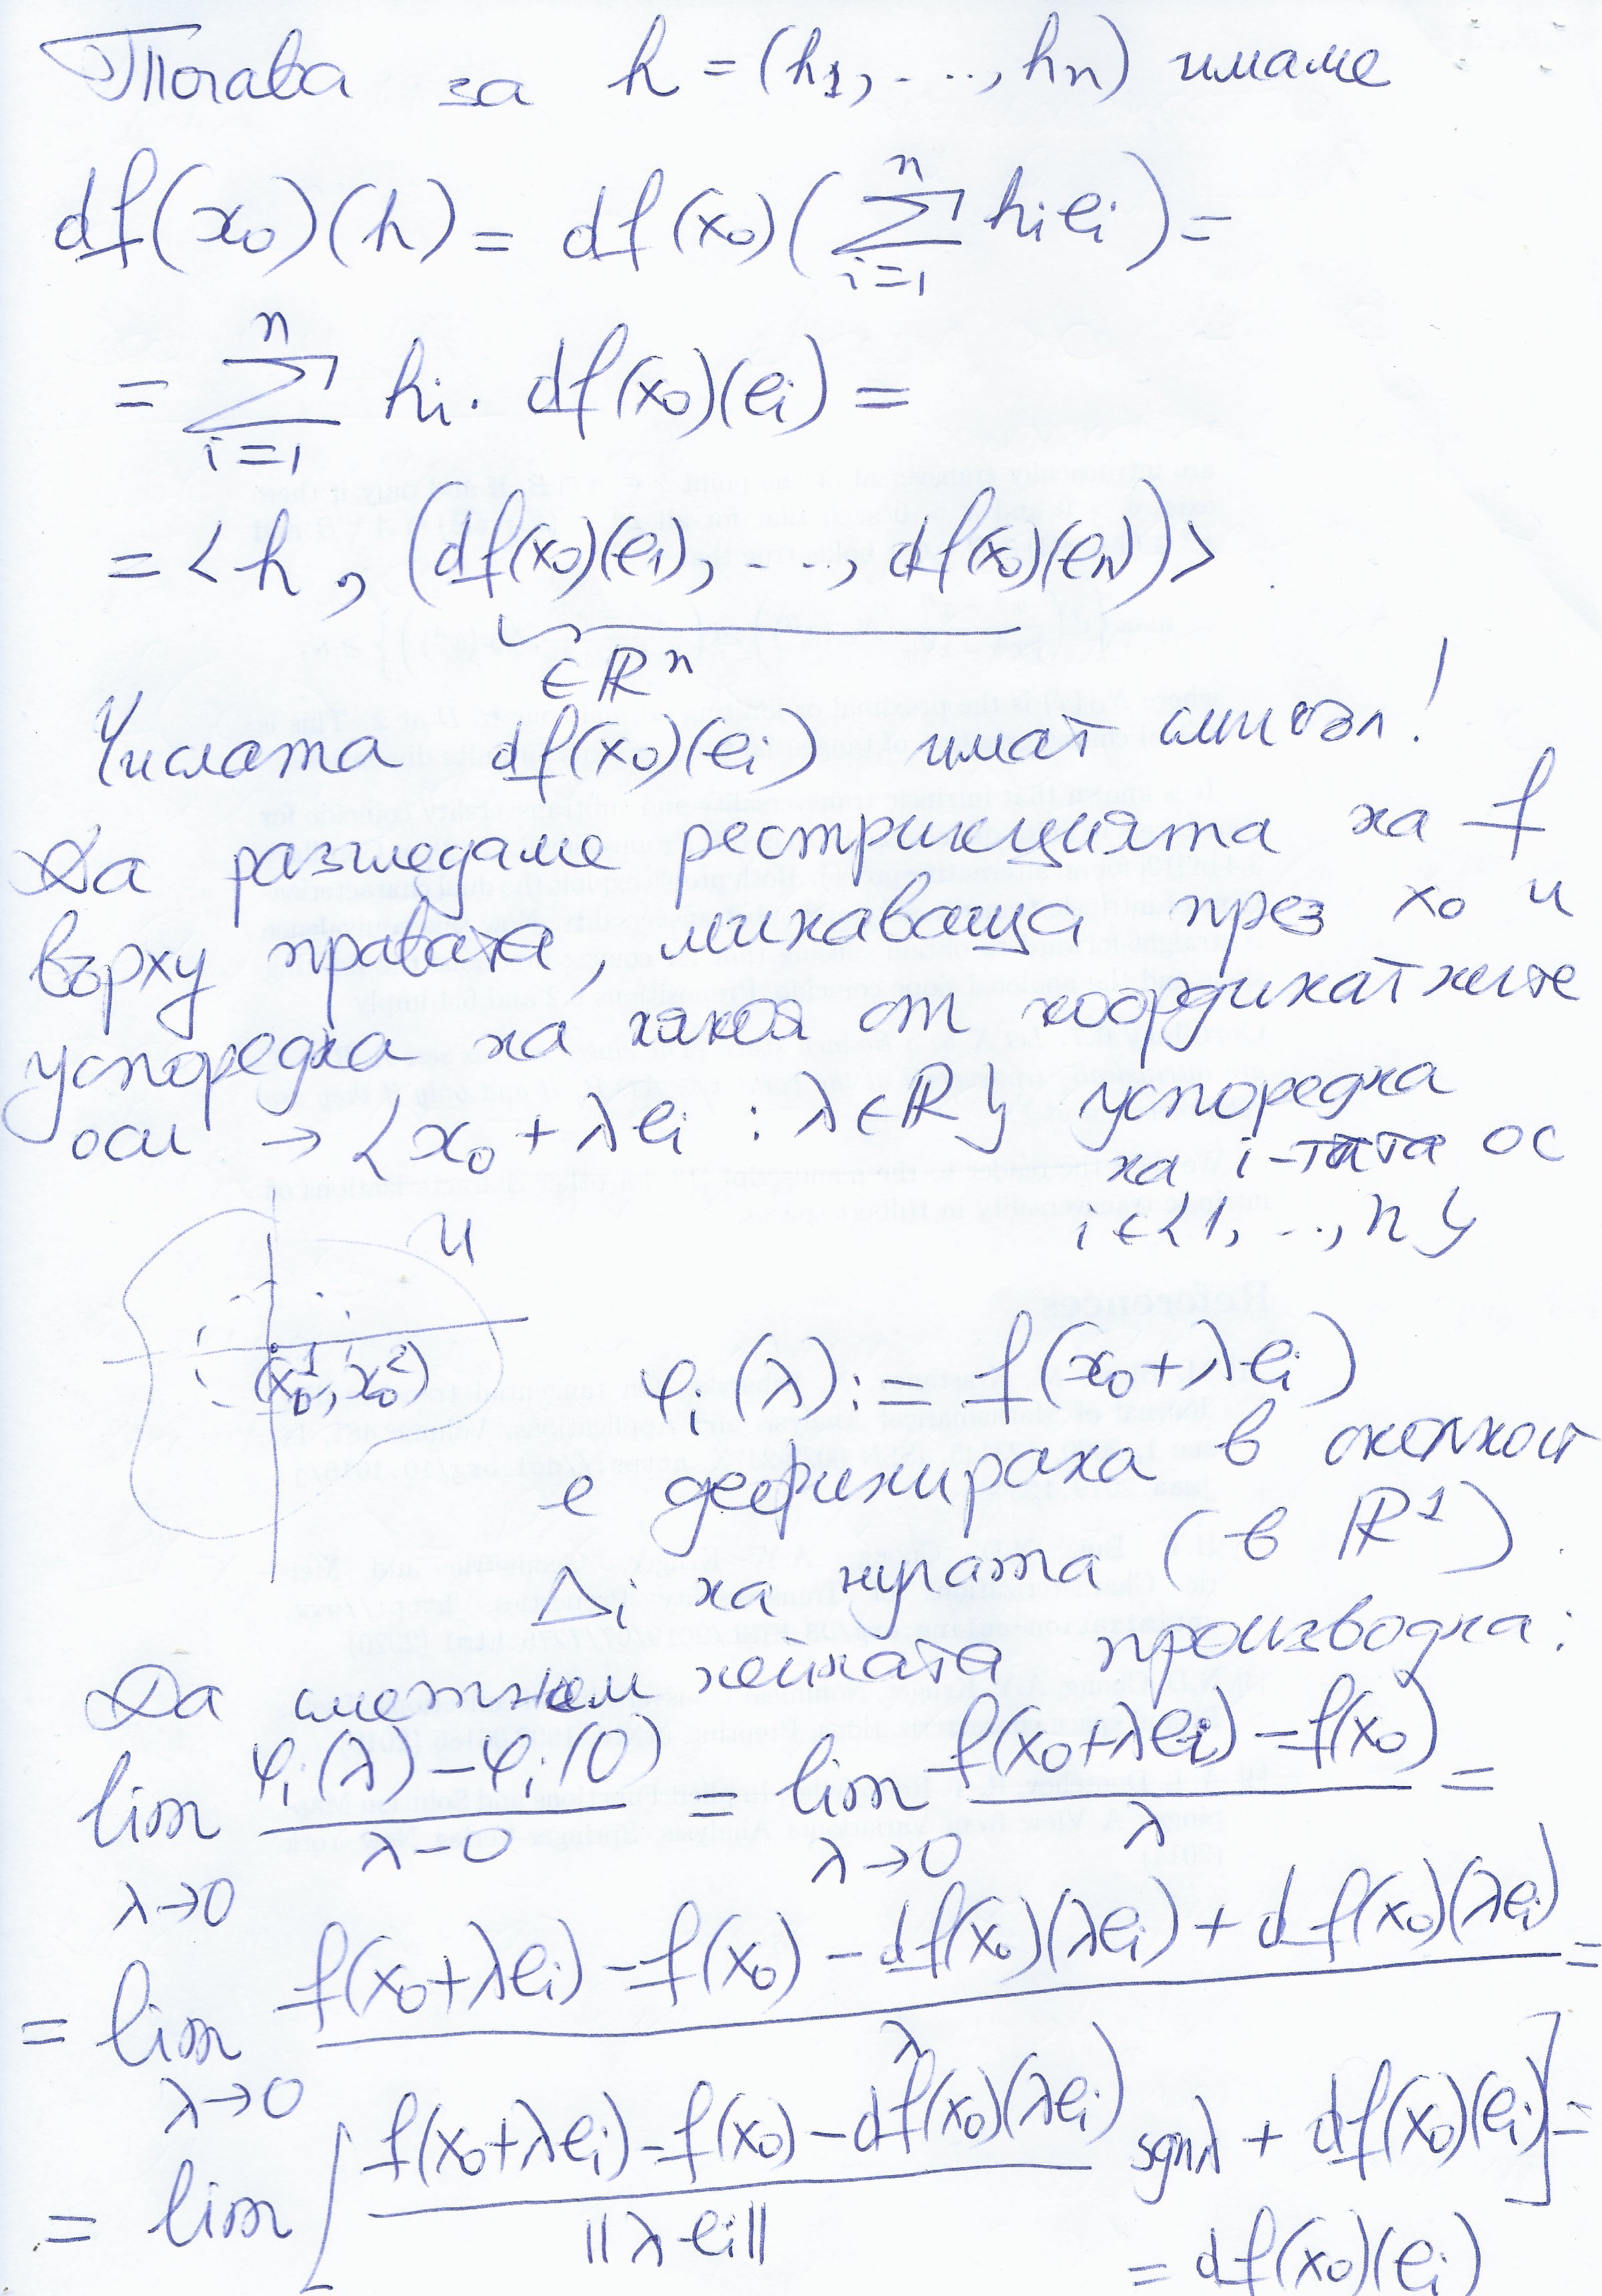 Тогава за h = (h₁, ..., hₙ) имаме
df(x₀)(h) = df(x₀)(∑ᵢ₌₁ⁿ hᵢeᵢ) =
= ∑ᵢ₌₁ⁿ hᵢ. df(x₀)(eᵢ) =
= <h, (df(x₀)(e₁), ..., df(x₀)(eₙ))>
∈ ℝⁿ
Числата df(x₀)(eᵢ) имат смисъл!
Да разгледаме рестрикцията на f
върху правата, минаваща през x₀ и
успоредна на някоя от координатните
оси → {x₀ + λeᵢ : λ∈ℝ} успоредна
на i-тата ос
i ∈ {1, ..., n}
U
(x₀¹, x₀²)
φᵢ(λ) := f(x₀+λeᵢ)
е дефинирана в околност
Δᵢ на нулата (в ℝ¹)
Да сметнем нейната производна:
lim_{λ→0} (φᵢ(λ) − φᵢ(0))/(λ−0) = lim_{λ→0} (f(x₀+λeᵢ) − f(x₀))/λ =
= lim_{λ→0} (f(x₀+λeᵢ) − f(x₀) − df(x₀)(λeᵢ) + df(x₀)(λeᵢ))/λ =
= lim [(f(x₀+λeᵢ) − f(x₀) − df(x₀)(λeᵢ))/||λeᵢ|| sgnλ + df(x₀)(eᵢ)] =
= df(x₀)(eᵢ)